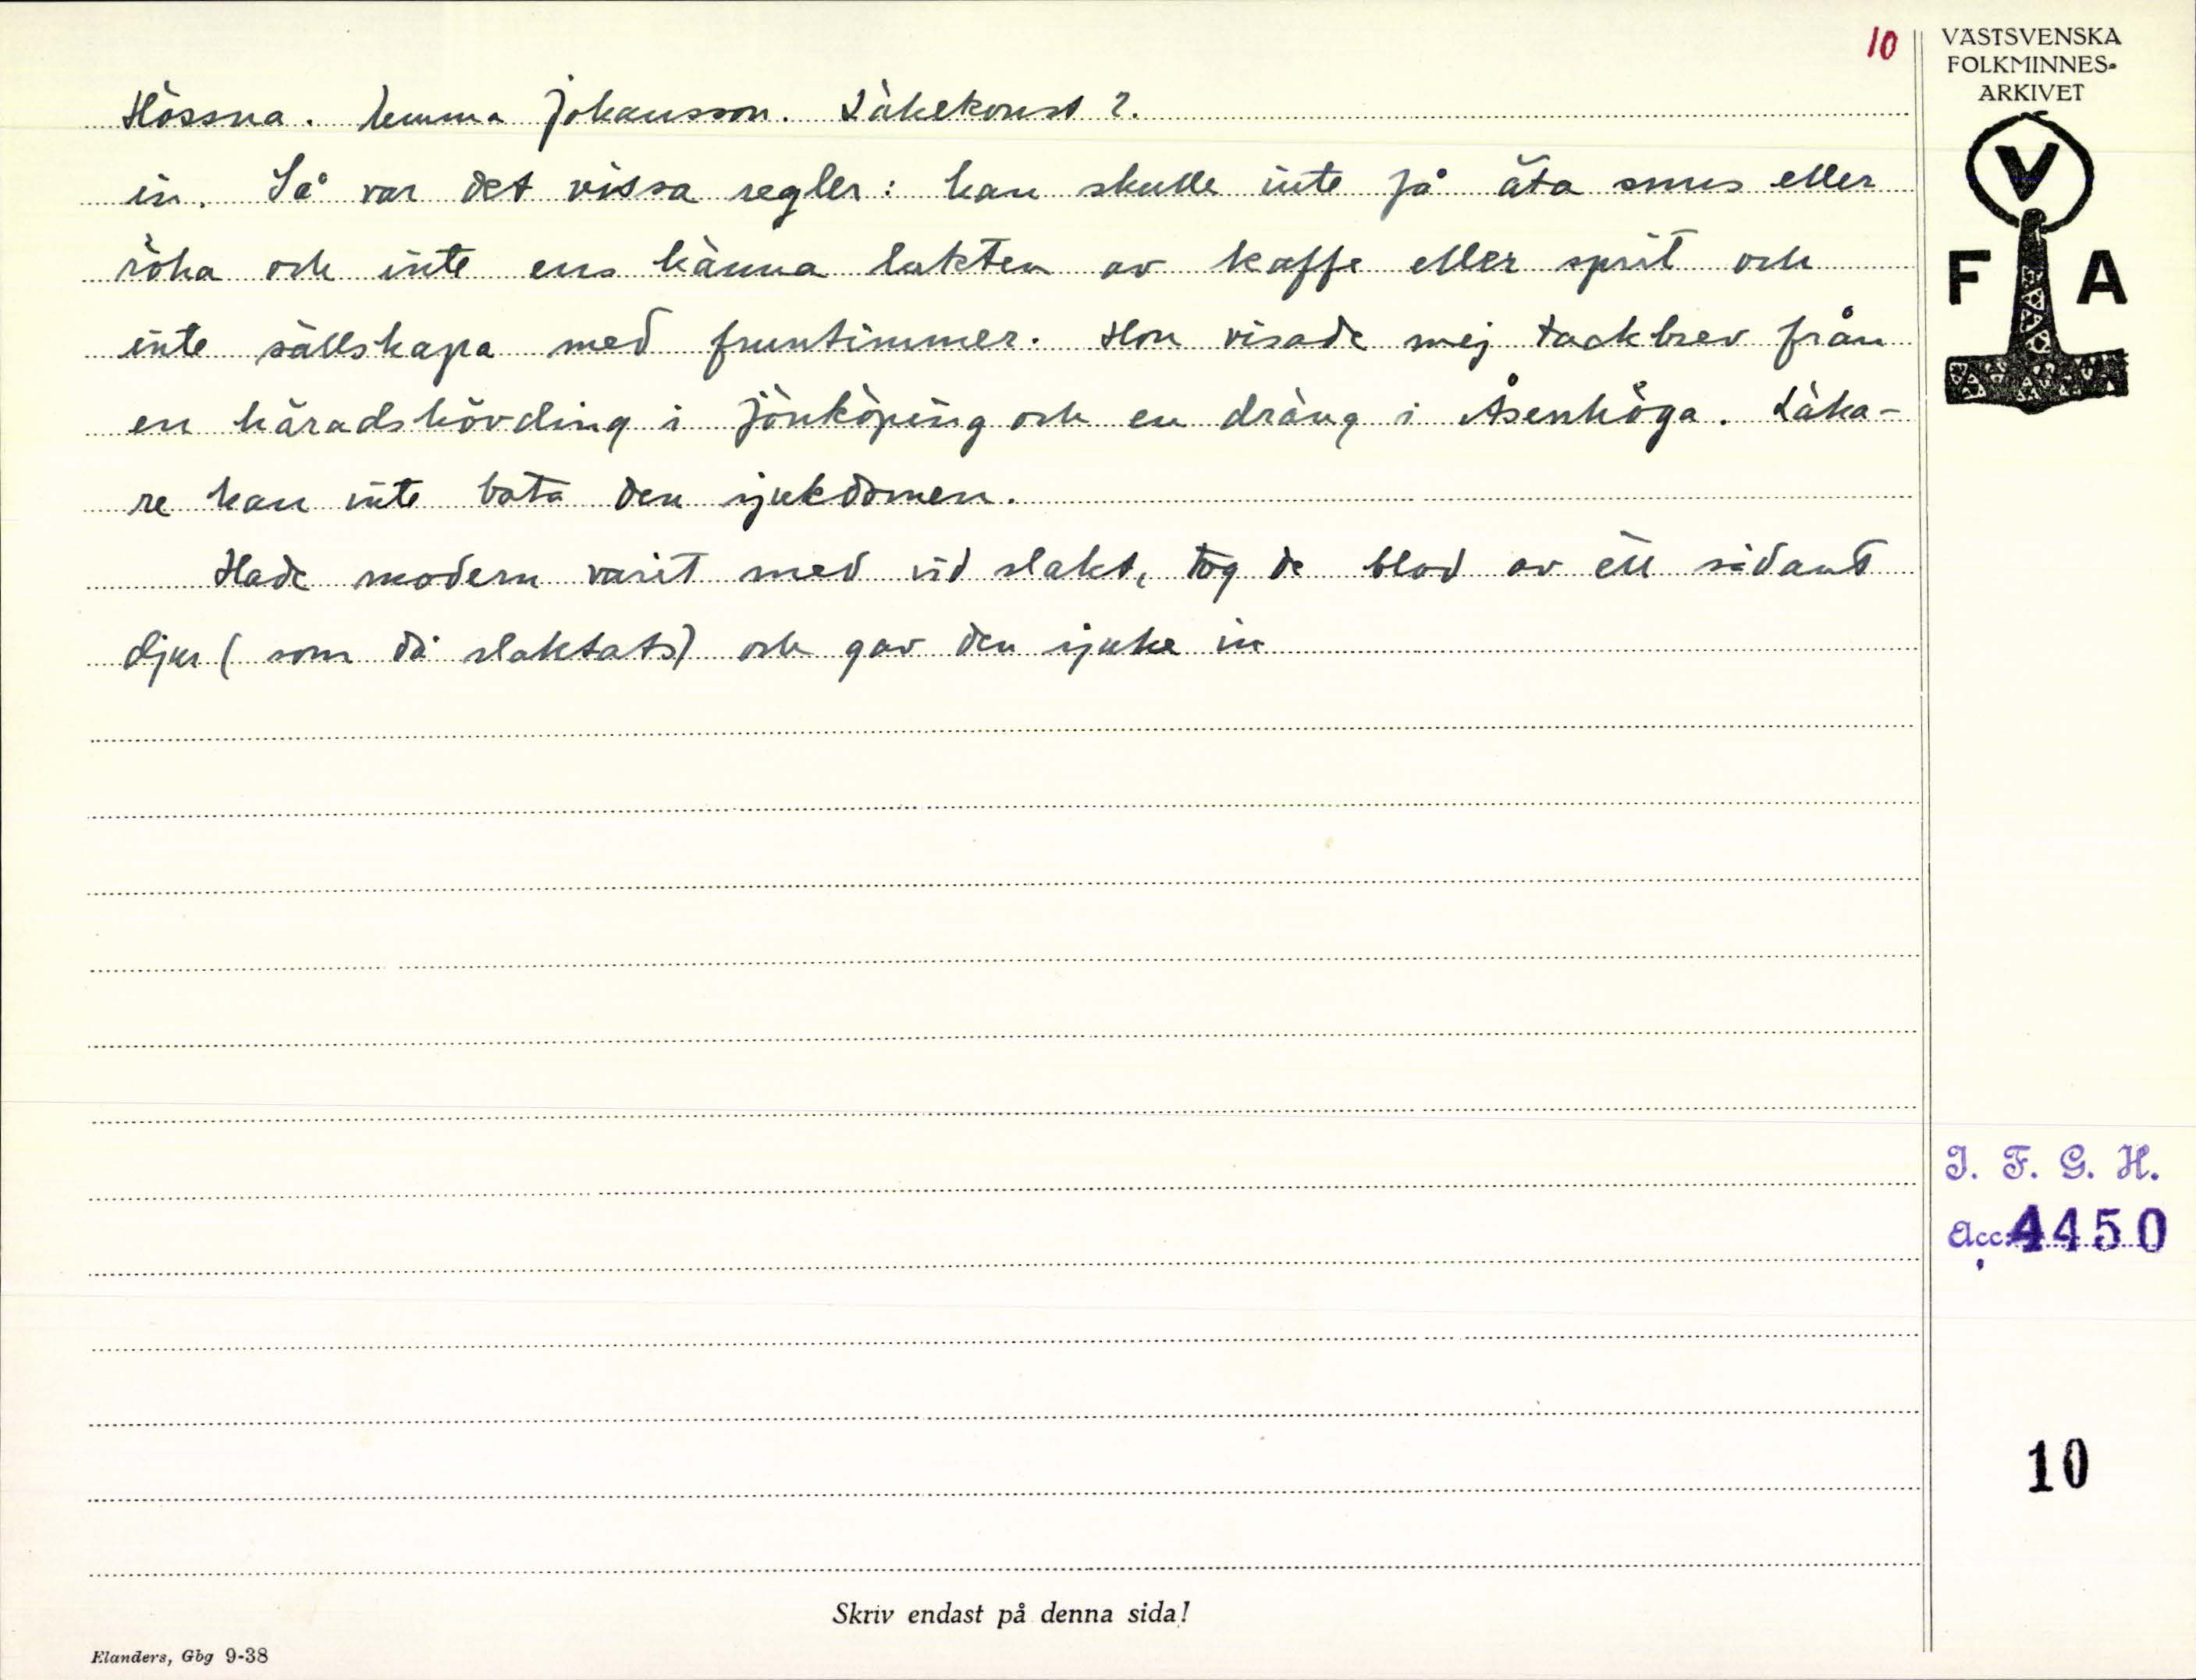 10
Hössna. Emma Johansson. Läkekonst 2.
in. Så var det vissa regler: han skulle inte få äta snus eller
röka och inte ens känna lukten av kaffe eller sprit och
inte sällskapa med fruntimmer. Hon visade mej tackbrev från
en häradshövding i Jönköping och en dräng i Åsenhöga. Läka-
re kan inte bota den sjukdomen.
Hade modern varit med vid slakt, tog de blod av ett sådant
djur (som då slaktats) och gav den sjuke in
VÄSTSVENSKA
FOLKMINNES-
ARKIVET
V
F A
I. F. G. H.
Acc. 4450
10
Skriv endast på denna sida!
Elanders, Gbg 9-38